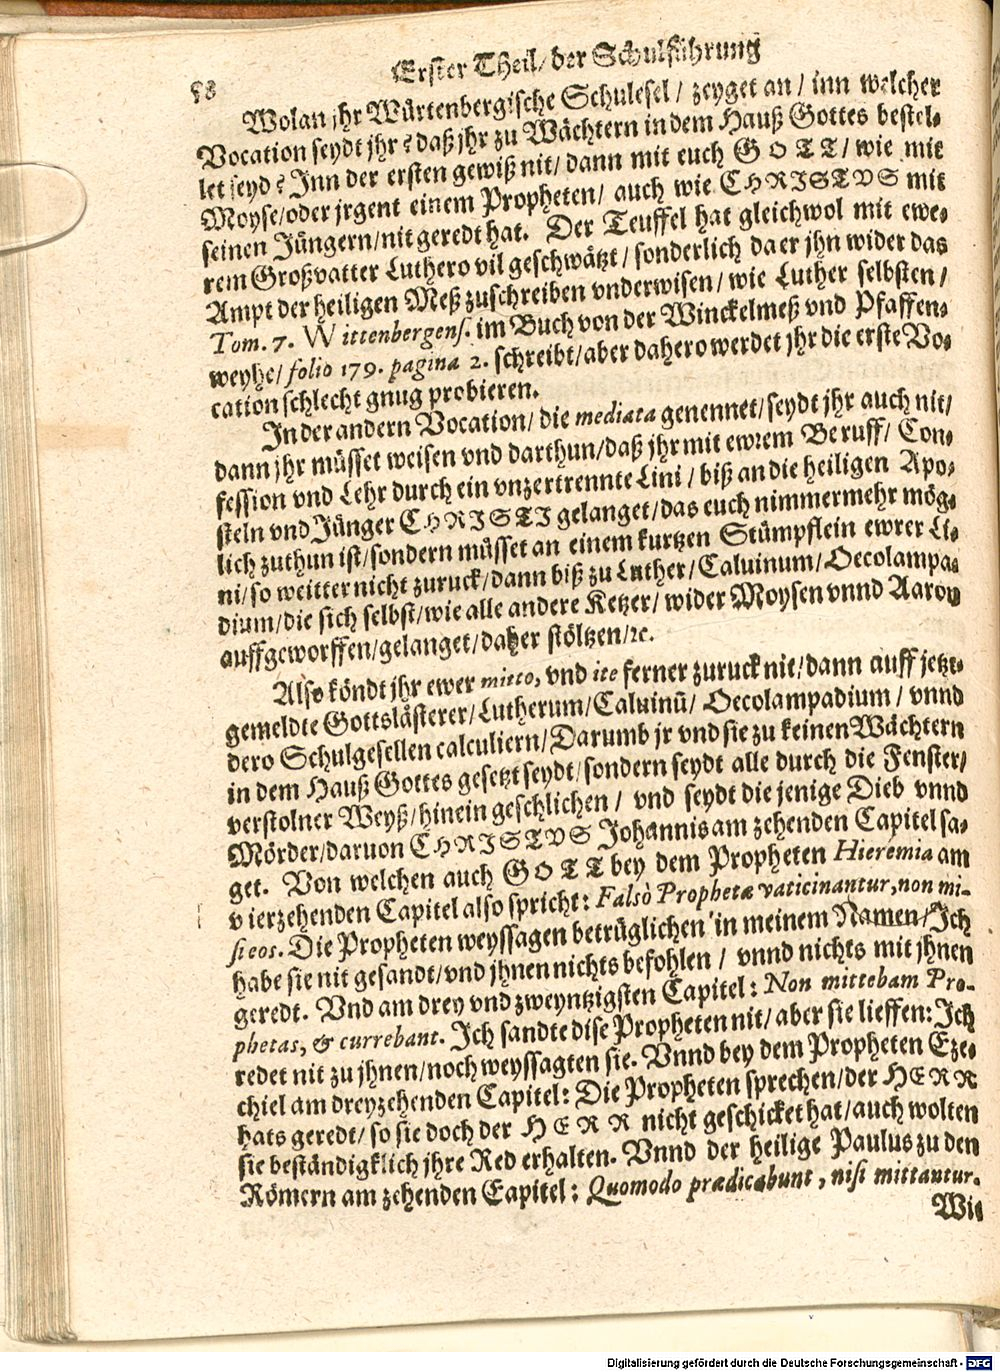 Erster Theil/ der Schulführung
Wolan jhr Würtenbergische Schulesel/ zeyget an/ inn welcher
Vocation seydt jhr? daß jhr zu Wächtern in dem Hauß Gottes bestel-
let seyd? Inn der ersten gewiß nit/ dann mit euch GOTT/ wie mit
Moyse/oder jrgent einem Propheten/ auch wie CHRISTVS mit
seinen Jüngern/nit geredt hat. Der Teuffel hat gleichwol mit ewe-
rem Großvatter Luthero vil geschwätzt/ sonderlich da er jhn wider das
Ampt der heiligen Meß zuschreiben vnderwisen/ wie Luther selbsten/
Tom. 7. Wittenbergens. im Buch von der Winckelmeß vnd Pfaffen-
weyhe/ folio 179. pagina 2. schreibt/aber dahero werdet jhr die erste Vo-
cation schlecht gnug probieren.
In der andern Vocation/ die mediata genennet/seydt jhr auch nit/
dann jhr müsset weisen vnd darthun/daß jhr mit ewrem Beruff/ Con-
fession vnd Lehr durch ein vnzertrennte Lini/ biß an die heiligen Apo-
steln vnd Jünger CHRISTI gelanget/das euch nimmermehr mög-
lich zuthun ist/sondern müsset an einem kurtzen Stümpflein ewrer Li-
ni/so weitter nicht zuruck/dann biß zu Luther/Caluinum/Oecolampa-
dium/die sich selbst/wie alle andere Ketzer/ wider Moysen vnnd Aaron
auffgeworffen/gelanget/daher stöltzen/rc.
Also köndt jhr ewer mitto, vnd ite ferner zuruck nit/dann auff jetzt-
gemeldte Gottslästerer/Lutherum/Caluinū/ Oecolampadium/ vnnd
dero Schulgesellen calculiern/Darumb jr vnd sie zu keinen Wächtern
in dem Hauß Gottes gesetzt seydt/sondern seydt alle durch die Fenster/
verstolner Weyß/hinein geschlichen/ vnd seydt die jenige Dieb vnnd
Mörder/daruon CHRISTVS Johannis am zehenden Capitel sa-
get. Von welchen auch GOTT bey dem Propheten Hieremia am
vierzehenden Capitel also spricht: Falsò Prophetæ vaticinantur, non mi-
si eos. Die Propheten weyssagen betrüglichen in meinem Namen/Ich
habe sie nit gesandt/vnd jhnen nichts befohlen/ vnnd nichts mit jhnen
geredt. Vnd am drey vnd zweyntzigsten Capitel: Non mittebam Pro-
phetas, & currebant. Ich sandte dise Propheten nit/ aber sie lieffen: Ich
redet nit zu jhnen/noch weyssagten sie. Vnnd bey dem Propheten Eze-
chiel am dreyzehenden Capitel: Die Propheten sprechen/der HERR
hats geredt/ so sie doch der HERR nicht geschicket hat/auch wolten
sie beständigklich jhre Red erhalten. Vnnd der heilige Paulus zu den
Römern am zehenden Capitel: Quomodo prædicabunt, nisi mittantur.
Wie
Digitalisierung gefördert durch die Deutsche Forschungsgemeinschaft - DFG